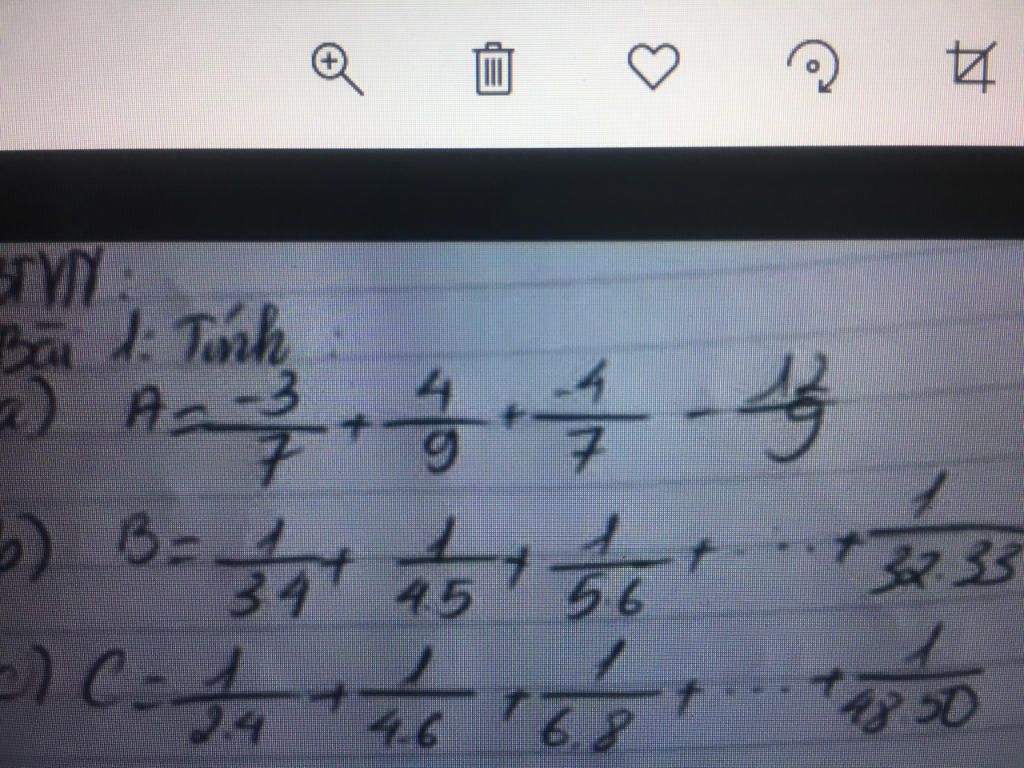 BTVN:
Bài 1: Tính:
a) A = -3/7 + 4/9 + -4/7 - 12/9
b) B = 1/3.4 + 1/4.5 + 1/5.6 + ... + 1/32.33
c) C = 1/2.4 + 1/4.6 + 1/6.8 + ... + 1/48.50